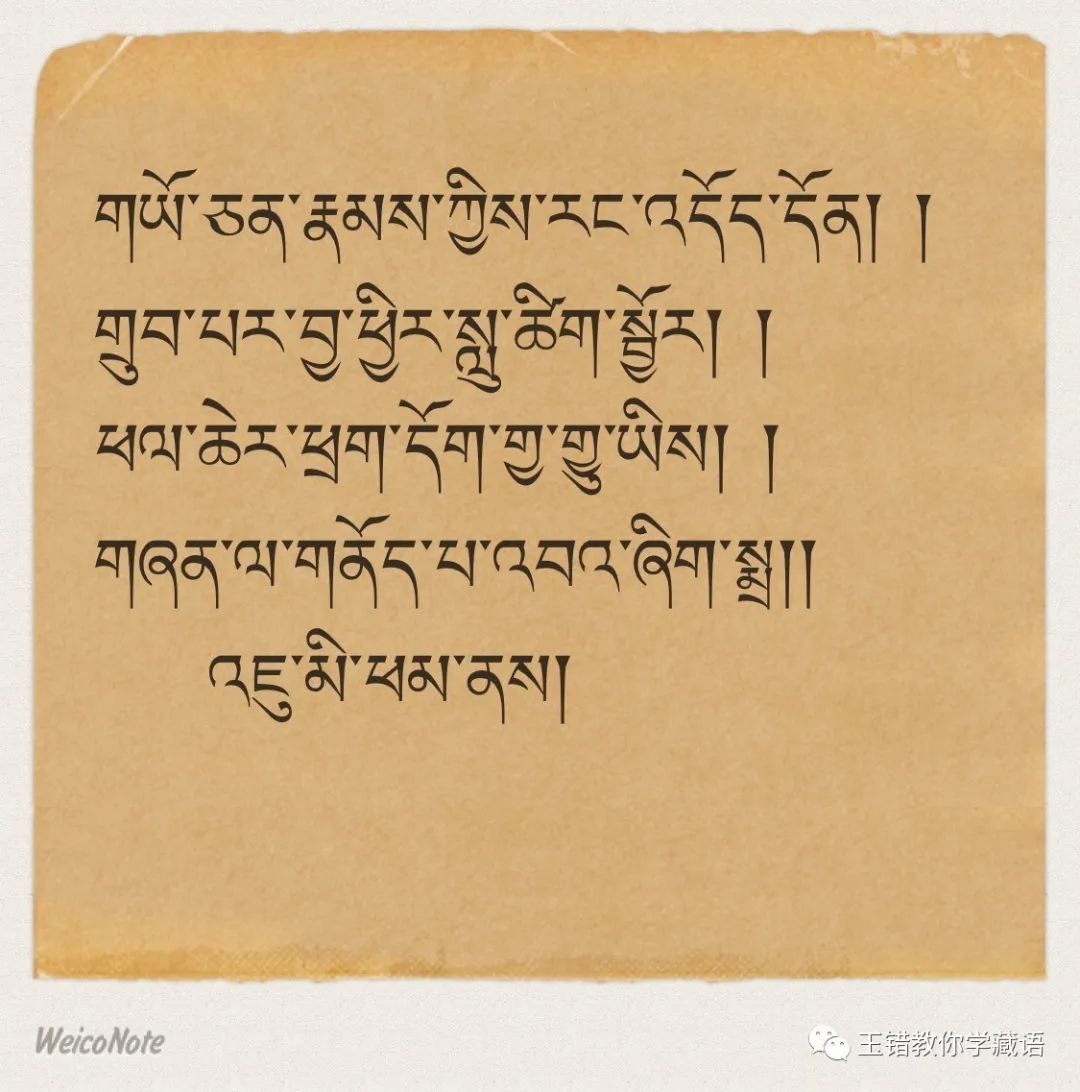 གཡོ་ཅན་རྣམས་ཀྱིས་རང་འདོད་དོན། །
གྲུབ་པར་བྱ་ཕྱིར་སླུ་ཚིག་སྦྱོར། །
ཕལ་ཆེར་ཕྲག་དོག་གྱ་གྱུ་ཡིས། །
གཞན་ལ་གནོད་པ་འབའ་ཞིག་སྨྲ།།
འཇུ་མི་ཕམ་ནས།
WeicoNote
玉错教你学藏语